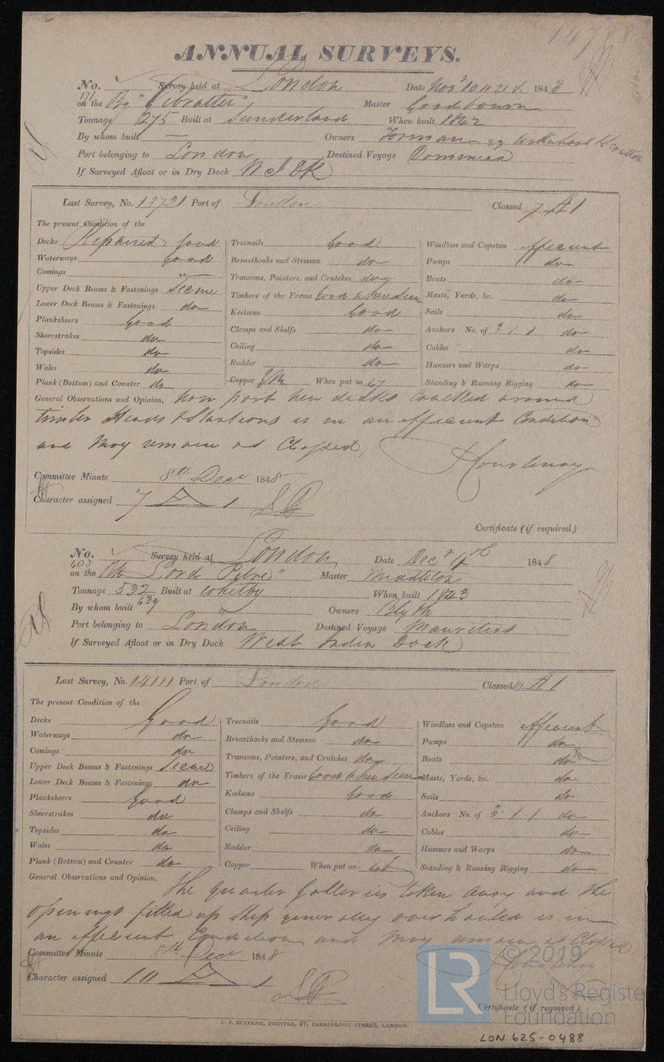 14788
ANNUAL SURVEYS.
No. 171 Survey held at London Date Nov 10 1848
on the Bg "Gibralter" Master Goodbourn
Tonnage 275 Built at Sunderland When built 1842
By whom built — Owners Forman
Port belonging to London Destined Voyage Dominica
If Surveyed Afloat or in Dry Dock W I Dk
Last Survey, No. 13731 Port of London Classed 7 A 1
The present Condition of the
Decks Repaired good
Waterways Good
Comings "
Upper Deck Beams & Fastenings Secure
Lower Deck Beams & Fastenings do
Planksheers Good
Sheerstrakes do
Topsides do
Wales do
Plank (Bottom) and Counter do
Treenails Good
Breasthooks and Stemson do
Transoms, Pointers, and Crutches do
Timbers of the Frame Good where seen
Keelsons Good
Clamps and Shelfs do
Ceiling do
Rudder do
Copper YM When put on 47
Windlass and Capstan efficient
Pumps do
Boats do
Masts, Yards, &c. do
Sails do
Anchors No. of 3.1.1 do
Cables do
Hawsers and Warps do
Standing & Running Rigging do
General Observations and Opinion, now part new decks caulked around
timber Heads & Stantions is in an efficient Condition
and May remain as Classed,
Courtenay
Committee Minute 8th Decr 1848
Character assigned 7 A 1
Certificate (if required)
No. 403 Survey held at London Date Decr 4th 1848
on the "Lord Petre" Master Middleton
Tonnage 532 639 Built at Whitby When built 1843
By whom built Owners Blyth
Port belonging to London Destined Voyage Mauritius
If Surveyed Afloat or in Dry Dock West India Dock
Last Survey, No. 14111 Port of London Classed A 1
The present Condition of the
Decks Good
Waterways do
Comings do
Upper Deck Beams & Fastenings Secure
Lower Deck Beams & Fastenings do
Planksheers Good
Sheerstrakes do
Topsides do
Wales do
Plank (Bottom) and Counter do
Treenails Good
Breasthooks and Stemson do
Transoms, Pointers, and Crutches do
Timbers of the Frame Good where seen
Keelsons Good
Clamps and Shelfs do
Ceiling do
Rudder do
Copper When put on 46
Windlass and Capstan efficient
Pumps do
Boats do
Masts, Yards, &c. do
Sails do
Anchors No. of 3.1.1 do
Cables do
Hawsers and Warps do
Standing & Running Rigging do
General Observations and Opinion, The quarter Galleries taken away and the
openings fitted up Ship generally overhauled is in
an efficient Condition and May remain as Classed
Courtenay
Committee Minute 8th Decr 1848
Character assigned A 1
Certificate (if required).
PRINTER, 57, FARRINGDON STREET, LONDON
LR © 2019
Lloyd's Register
Foundation
LON 625-0488